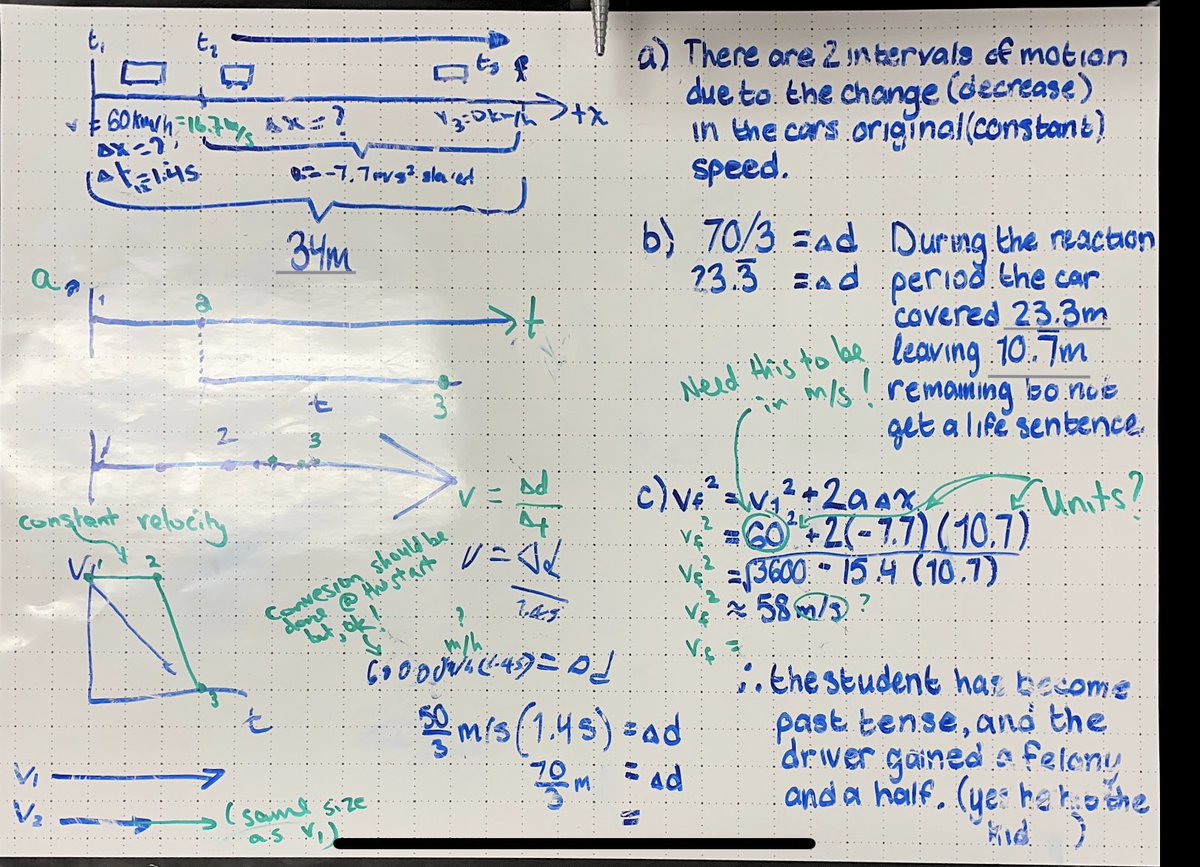 t₁
t₂
t₃
v = 60 km/h = 16.7 m/s
Δx = ?
v₃ = 0 km/h
+x
Δx = ?
Δt₁₂ = 1.4s
a = -7.7 m/s²
34m
a
1
2
t
t
3
2
3
constant velocity
V
1
2
3
t
V₁
V₂
(same size
as V₁)
v = Δd
Δt
v = Δd
1.4s
Convesion should be
done @ the start
but, ok!
?
m/h
(1.4s) = Δd
50/3 m/s (1.4s) = Δd
70/3 m = Δd
=
a) There are 2 intervals of motion
due to the change (decrease)
in the cars original (constant)
speed.
b) 70/3 = Δd
23.3̅ = Δd
During the reaction
period the car
covered 23.3m
leaving 10.7̅m
remaining to not
get a life sentence.
Need this to be
in m/s!
c) Vf² = V₁² + 2aΔx
Units?
Vf² = 60² + 2(-7.7)(10.7)
Vf² = √3600 - 15.4 (10.7)
Vf² ≈ 58 m/s ?
Vf =
∴ the student has become
past tense, and the
driver gained a felony
and a half. (yes he the
kid )